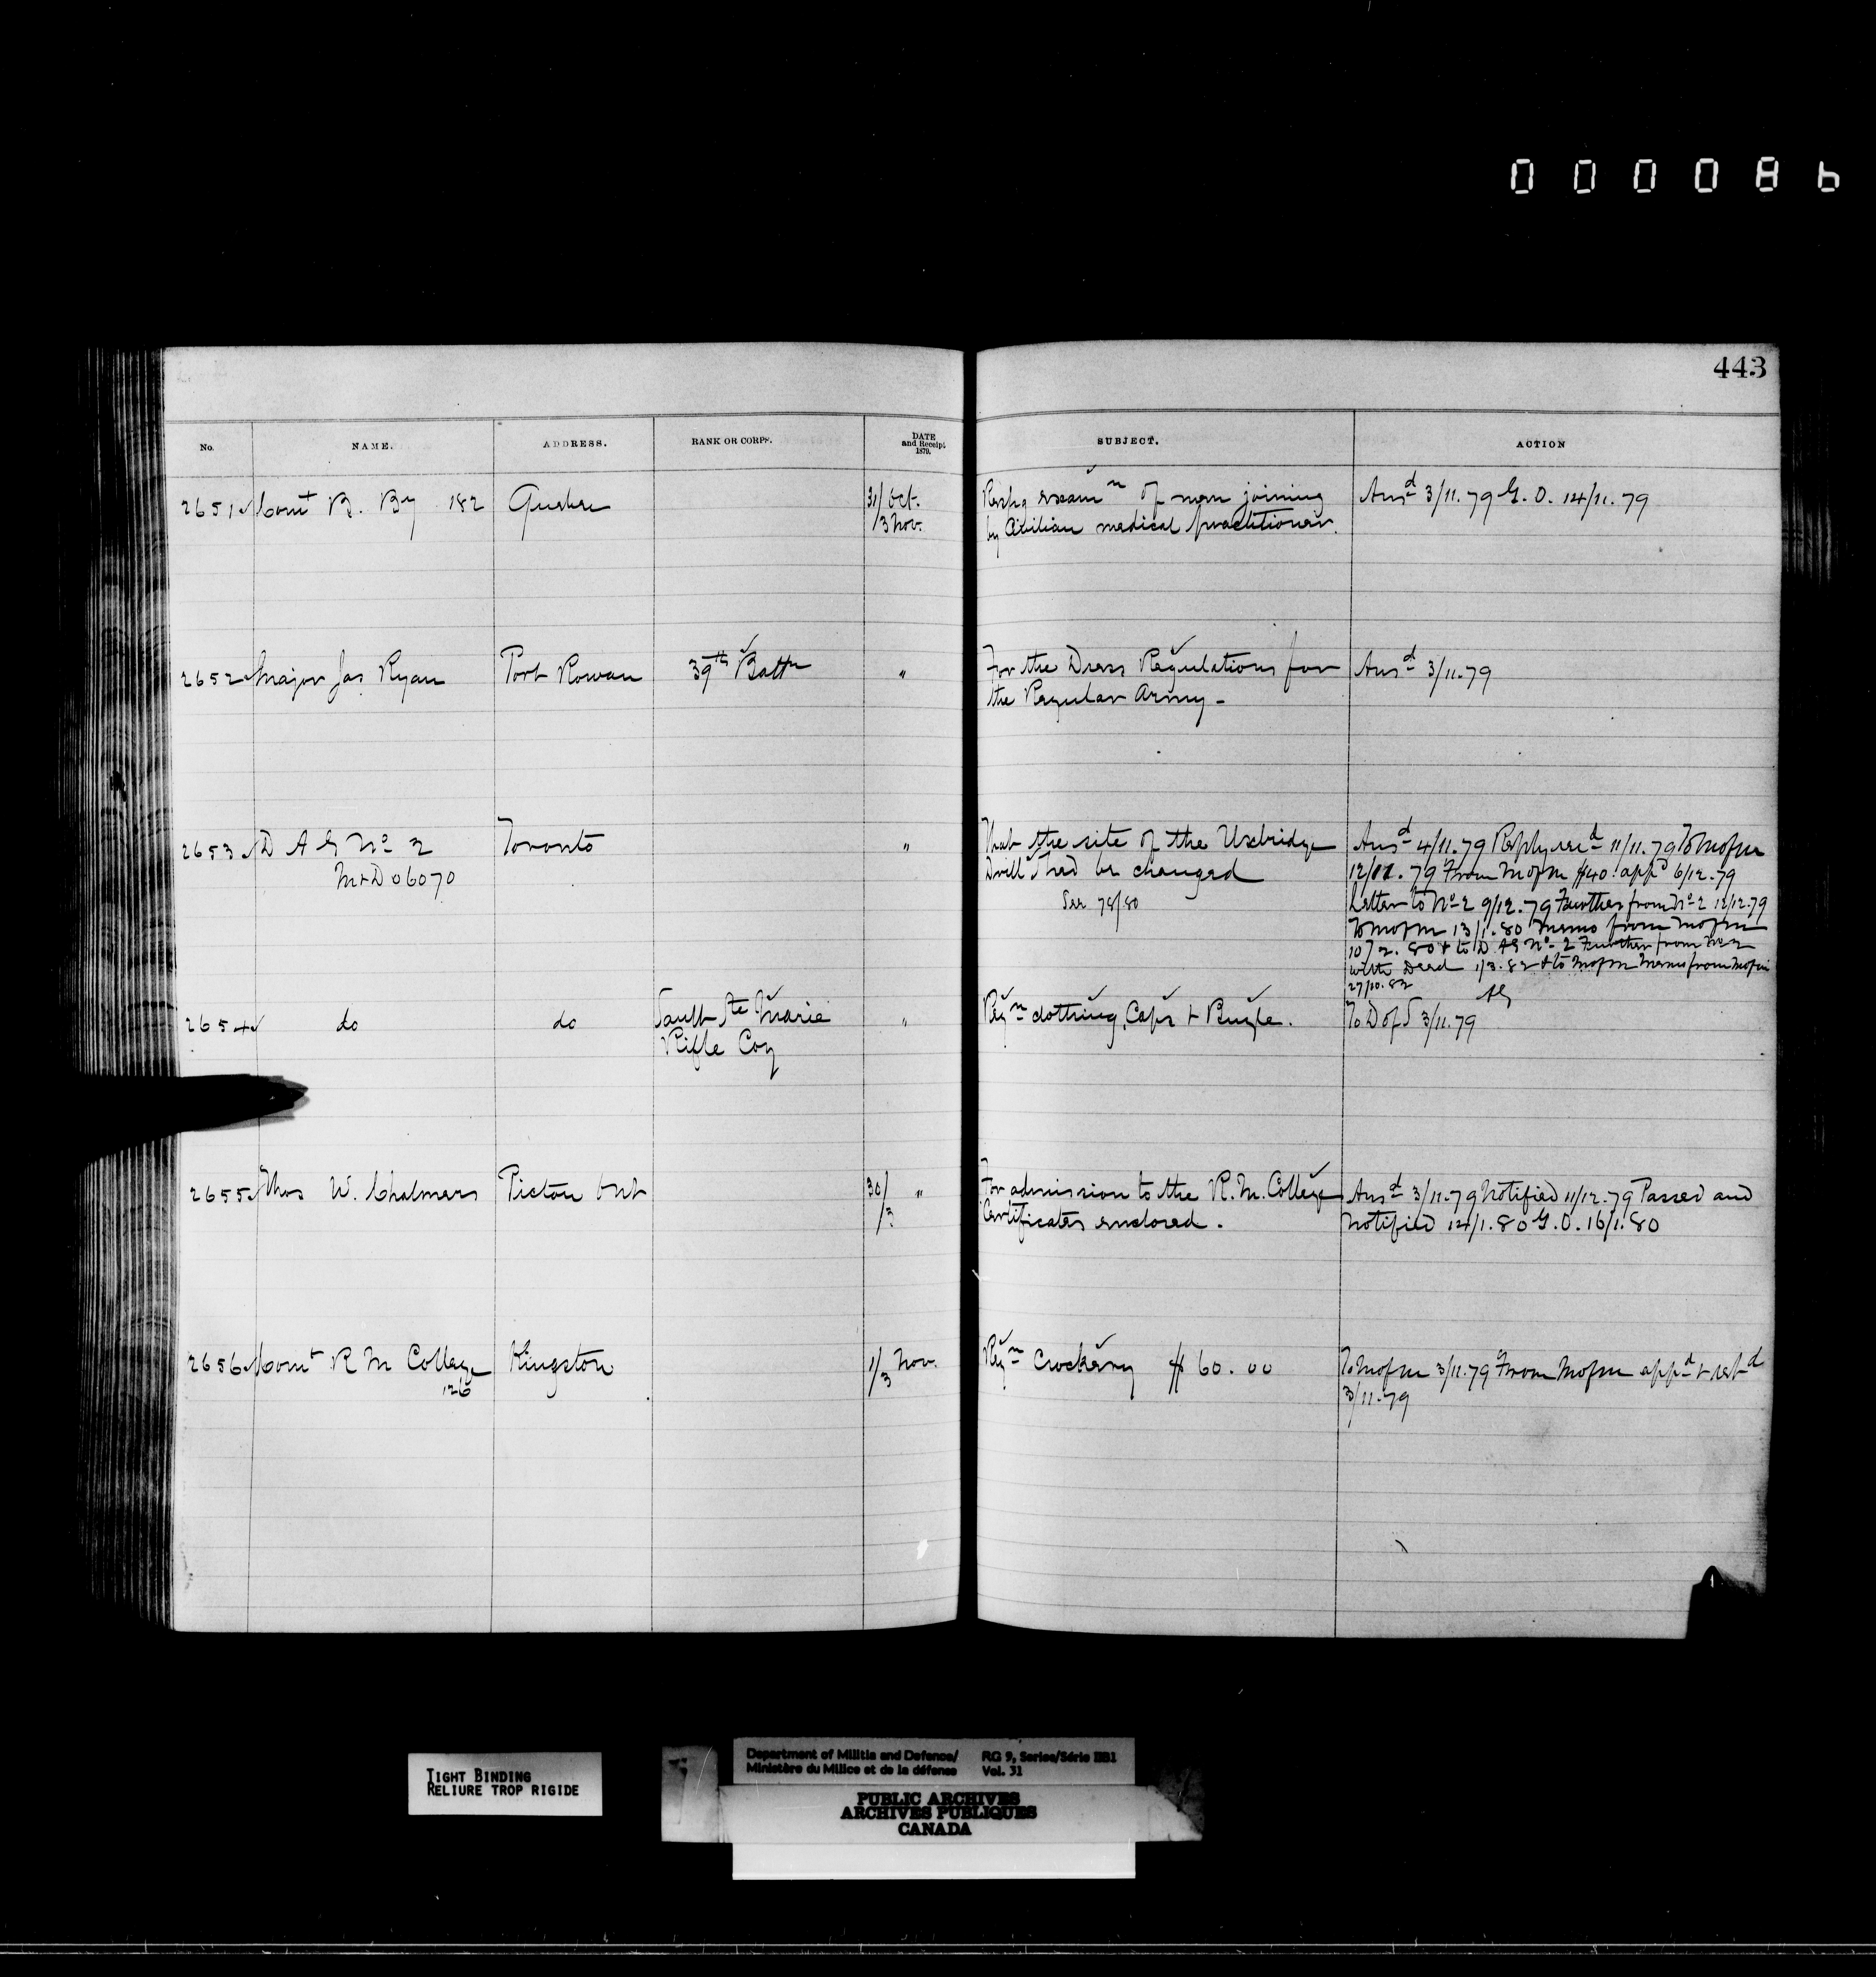 000086
443
No. NAME. ADDRESS. RANK OR CORPS. DATE and Receipt, 1879. SUBJECT. ACTION
2651 Comt B. By 182 Quebec 31/ Oct. Respg examn of men joining Ansd 3/11.79 G.O. 14/11.79
/3 Nov. by Civilian medical practitioner.
2652 Major Jas Ryan Port Rowan 39th Battn " For the Dress Regulations for Ansd 3/11.79
the Regular Army -
2653 D A G No 2 Toronto " That the site of the Uxbridge Ansd 4/11.79 Reply recd 11/11.79 To M of M
M & D 06070 Drill Shed be changed 12/11.79 From M of M $40. appd 6/12.79
See 78/80 Letter to No 2 9/12.79 Further from No 2 12/12.79
To M of M 13/1.80 Memo from M of M
10/2.80 & to D.A.G No 2 Further from No 2
with Deed 1/3.82 & to M of M Memo from M of M
27/10.82
AG
2654 do do Sault Ste Marie " Reqn clothing, Caps & Bugle. To D of S 3/11.79
Rifle Coy
2655 Thos W. Chalmers Picton Ont 30/ " For admission to the R.M. College Ansd 3/11.79 Notified 11/12.79 Passed and
/3 Certificates enclosed. notified 14/1.80 G.O. 16/1.80
2656 Comt R M College Kingston 1/3 Nov. Reqn Crockery $ 60.00 To M of M 3/11.79 From M of M appd & retd
126 3/11.79
TIGHT BINDING
RELIURE TROP RIGIDE
Department of Militia and Defence/ RG 9, Series/Série IIB1
Ministère du Milice et de la défense Vol. 31
PUBLIC ARCHIVES
ARCHIVES PUBLIQUES
CANADA